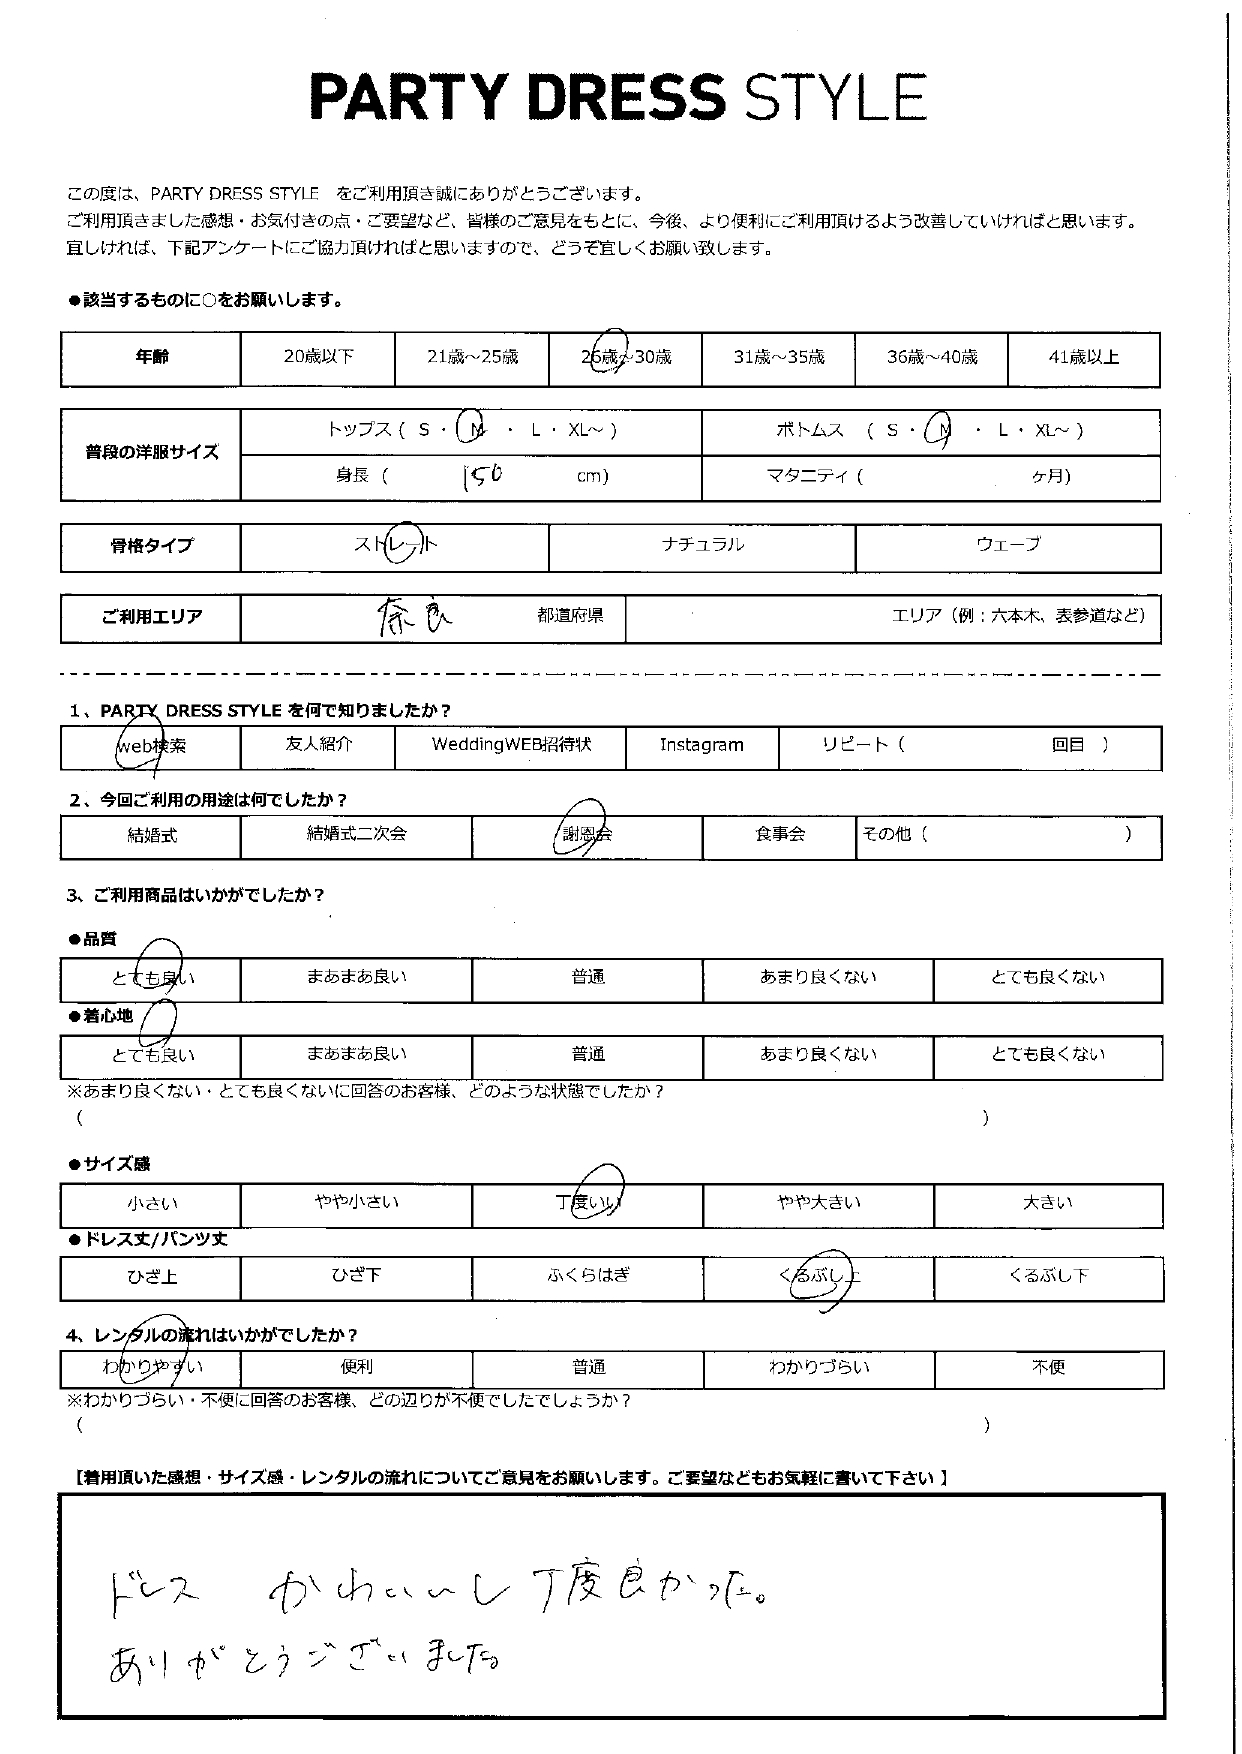 PARTY DRESS STYLE
この度は、PARTY DRESS STYLE をご利用頂き誠にありがとうございます。
ご利用頂きました感想・お気付きの点・ご要望など、皆様のご意見をもとに、今後、より便利にご利用頂けるよう改善していければと思います。
宜しければ、下記アンケートにご協力頂ければと思いますので、どうぞ宜しくお願い致します。
●該当するものに○をお願いします。
年齢 20歳以下 21歳～25歳 26歳～30歳 31歳～35歳 36歳～40歳 41歳以上
普段の洋服サイズ トップス ( S ・ M ・ L ・ XL～ ) ボトムス ( S ・ M ・ L ・ XL～ )
身長 ( 150 cm) マタニティ ( ヶ月)
骨格タイプ ストレート ナチュラル ウェーブ
ご利用エリア 奈良 都道府県 エリア（例：六本木、表参道など）
1、PARTY DRESS STYLE を何で知りましたか？
web検索 友人紹介 WeddingWEB招待状 Instagram リピート ( 回目 )
2、今回ご利用の用途は何でしたか？
結婚式 結婚式二次会 謝恩会 食事会 その他 ( )
3、ご利用商品はいかがでしたか？
●品質
とても良い まあまあ良い 普通 あまり良くない とても良くない
●着心地
とても良い まあまあ良い 普通 あまり良くない とても良くない
※あまり良くない・とても良くないに回答のお客様、どのような状態でしたか？
( )
●サイズ感
小さい やや小さい 丁度いい やや大きい 大きい
●ドレス丈/パンツ丈
ひざ上 ひざ下 ふくらはぎ くるぶし上 くるぶし下
4、レンタルの流れはいかがでしたか？
わかりやすい 便利 普通 わかりづらい 不便
※わかりづらい・不便に回答のお客様、どの辺りが不便でしたでしょうか？
( )
【着用頂いた感想・サイズ感・レンタルの流れについてご意見をお願いします。ご要望などもお気軽に書いて下さい 】
ドレス かわいいし丁度良かった。
ありがとうございました。